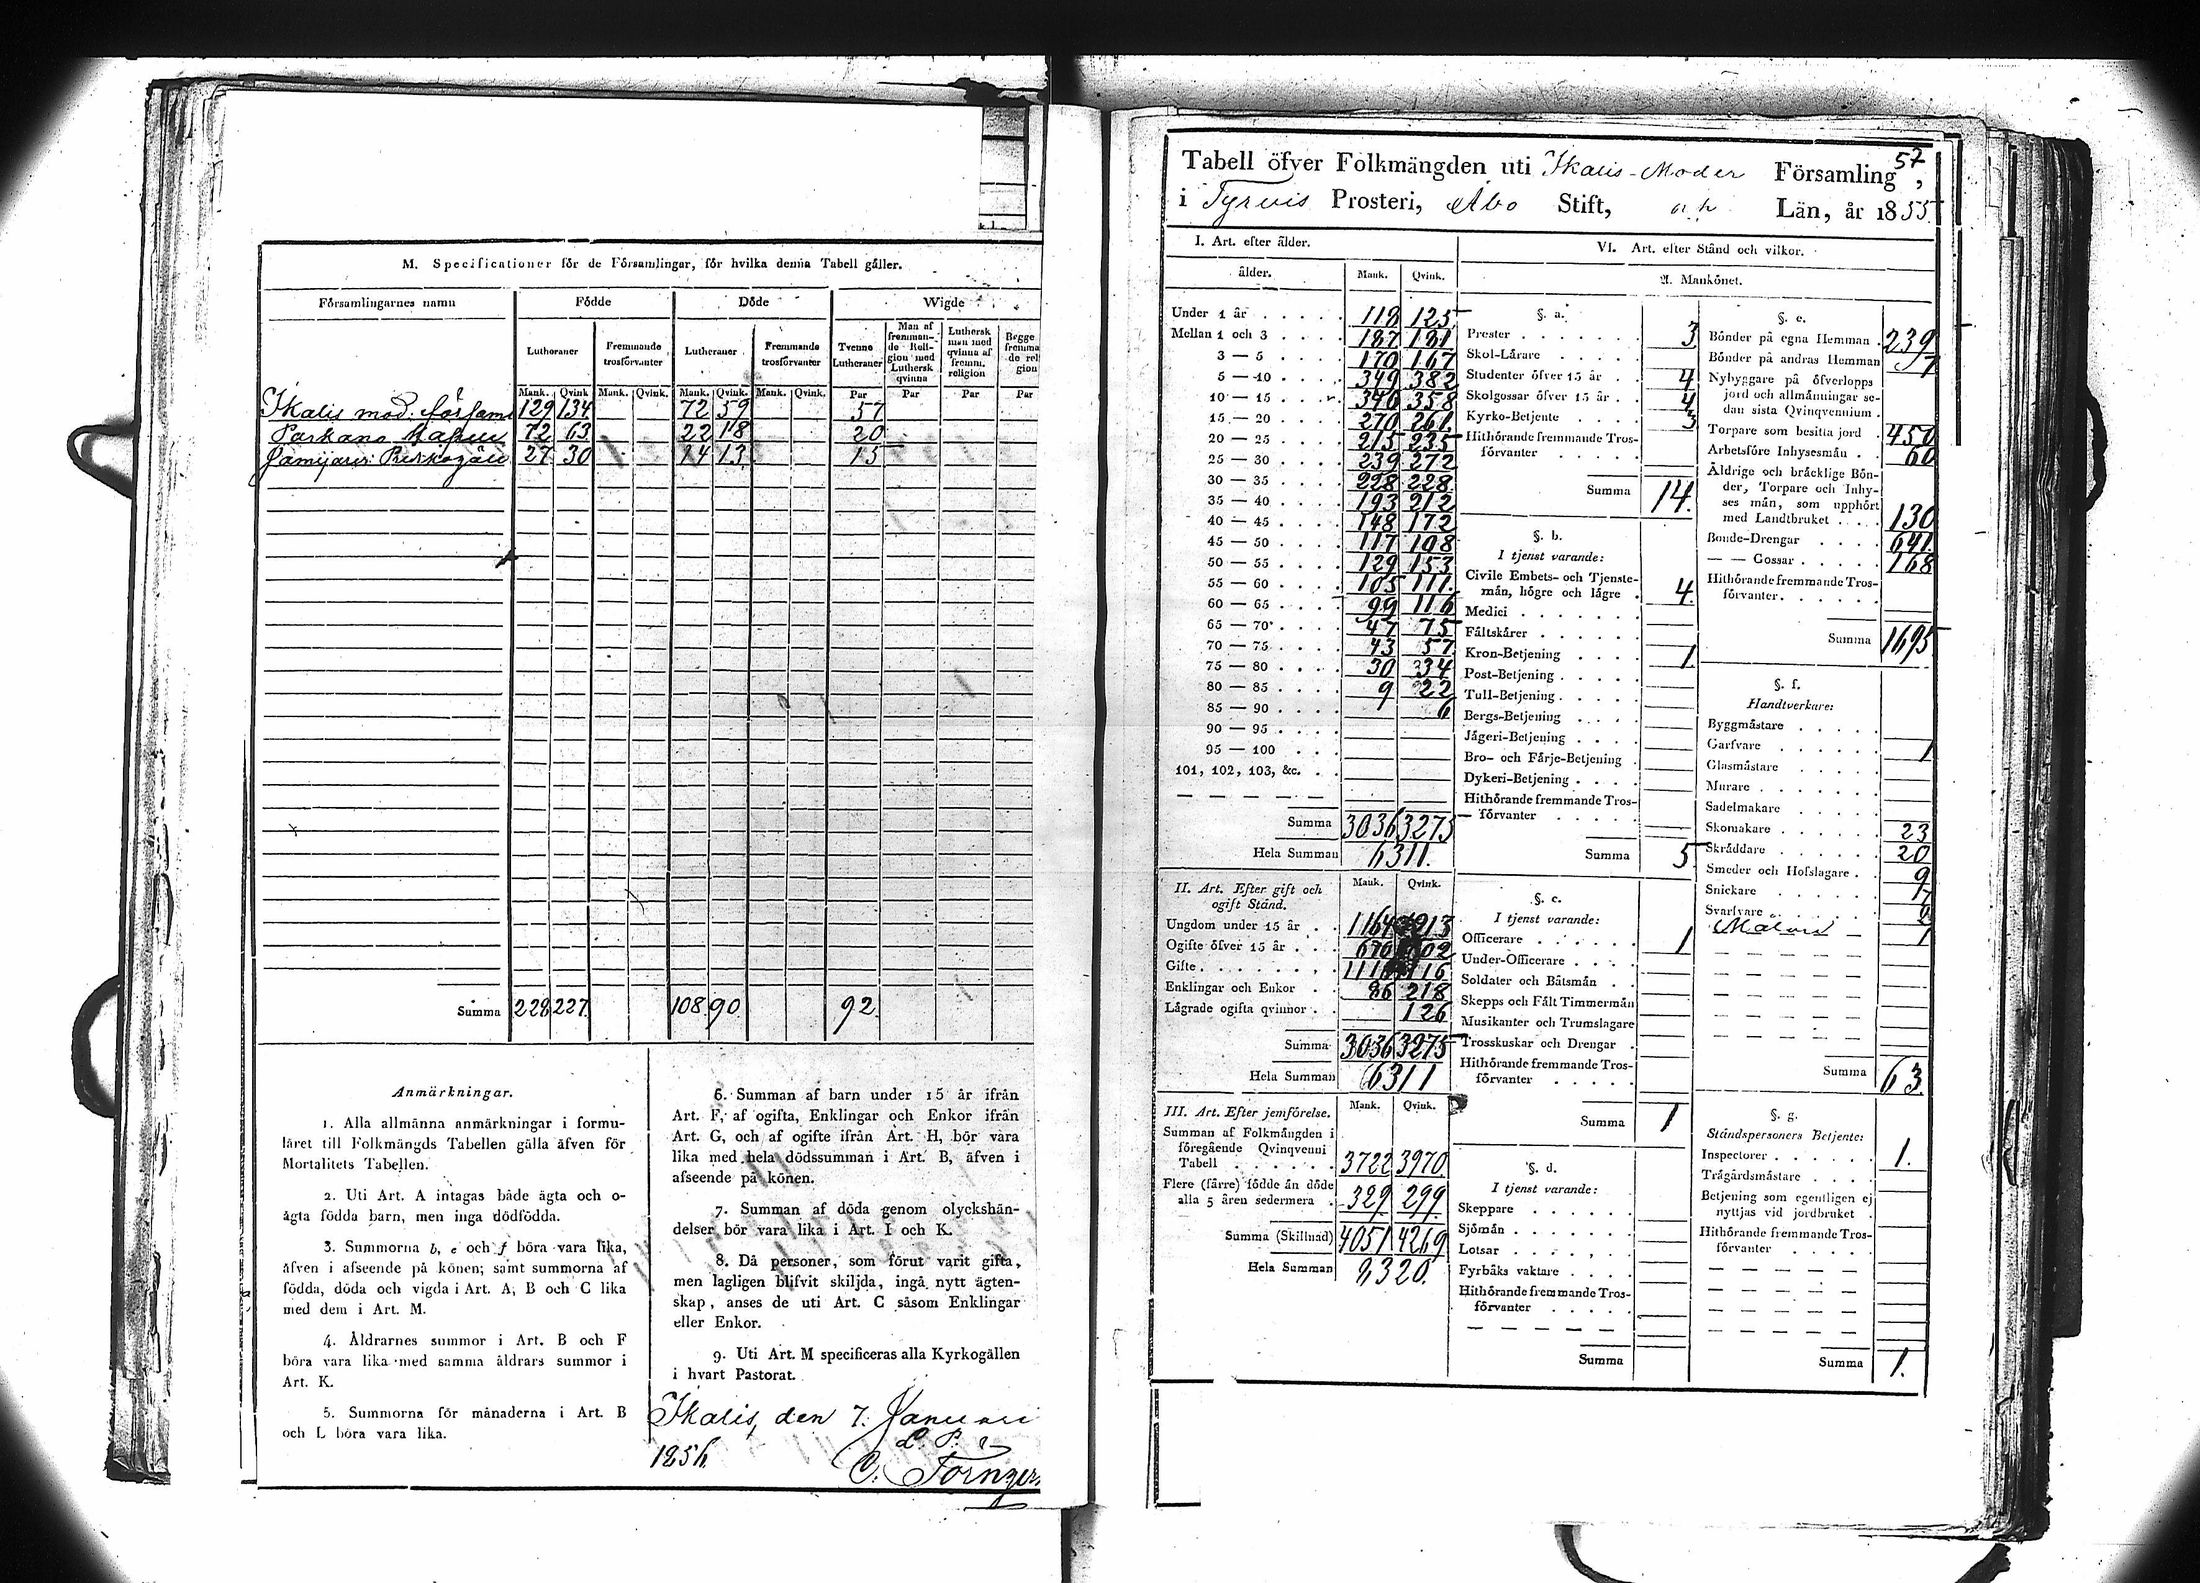 M. Specificationer för de Församlingar, för hvilka denna Tabell gäller.
Församlingarnes namn Födde Döde Wigde
Lutheraner Fremmande trosförvanter Lutheraner Fremmande trosförvanter Tvenne Lutheraner Man af fremmande Religion med Luthersk qvinna Luthersk man med qvinna af fremm. religion Begge
Mank. Qvink. Mank. Qvink. Mank. Qvink. Mank. Qvink. Par Par Par Par
Ikalis mod: förсаml 129 134 72 59 57
Parkano Kapell 72 63 22 18 20
Jämijärvi: 27 30 14 13 15
Summa 228 227 108 90 92
Anmärkningar.
1. Alla allmänna anmärkningar i formu-
läret till Folkmängds Tabellen gälla äfven för
Mortalitets Tabellen.
2. Uti Art. A intagas både ägta och o-
ägta födda barn, men inga dödfödda.
3. Summorna b, e och f böra vara lika,
äfven i afseende på könen; samt summorna af
födda, döda och vigda i Art. A, B och C lika
med dem i Art. M.
4. Åldrarnes summor i Art. B och F
böra vara lika med samma åldrars summor i
Art. K.
5. Summorna för månaderna i Art. B
och L böra vara lika.
6. Summan af barn under 15 år ifrån
Art. F, af ogifta, Enklingar och Enkor ifrån
Art. G, och af ogifte ifrån Art. H, bör vara
lika med hela dödssumman i Art. B, äfven i
afseende på könen.
7. Summan af döda genom olyckshän-
delser bör vara lika i Art. I och K.
8. Då personer, som förut varit gifta,
men lagligen blifvit skiljda, ingå nytt ägten-
skap, anses de uti Art. C såsom Enklingar
eller Enkor.
9. Uti Art. M specificeras alla Kyrkogällen
i hvart Pastorat.
Ikalis, den 7. Januari
1856.
57
Tabell öfver Folkmängden uti Ikalis-Moder Församling,
i Tyrvis Prosteri, Åbo Stift, Län, år 1855
I. Art. efter ålder.
ålder. Mank. Qvink.
Under 1 år 118 125
Mellan 1 och 3 187 181
3 — 5 170 167
5 — 10 349 382
10 — 15 340 358
15 — 20 270 261
20 — 25 215 235
25 — 30 239 272
30 — 35 228 228
35 — 40 193 212
40 — 45 148 172
45 — 50 117 108
50 — 55 129 153
55 — 60 105 111
60 — 65 99 116
65 — 70 47 75
70 — 75 43 57
75 — 80 30 34
80 — 85 9 22
85 — 90 6
90 — 95
95 — 100
101, 102, 103, &c.
Summa 3036 3275
Hela Summan 6311.
II. Art. Efter gift och
ogift Stånd.
Mank. Qvink.
Ungdom under 15 år 1164 1213
Ogifte öfver 15 år 670 602
Gifte 1116 1116
Enklingar och Enkor 86 218
Lägrade ogifta qvinnor 126
Summa 3036 3275
Hela Summan 6311
III. Art. Efter jemförelse. Mank. Qvink.
Summan af Folkmängden i
föregående Qvinqvenni
Tabell 3722 3970
Flere (färre) födde än döde
alla 5 åren sedermera 329 299
Summa (Skillnad) 4051 4269
Hela Summan 8320.
VI. Art. efter Stånd och vilkor.
A. Mankönet.
§. a.
Prester 3
Skol-Lärare
Studenter öfver 15 år 4
Skolgossar öfver 15 år 4
Kyrko-Betjente 3
Hithörande fremmande Tros-
förvanter
Summa 14.
§. b.
I tjenst varande:
Civile Embets- och Tjenste-
män, högre och lägre 4.
Medici
Fältskärer
Kron-Betjening 1
Post-Betjening
Tull-Betjening
Bergs-Betjening
Jägeri-Betjening
Bro- och Färje-Betjening
Dykeri-Betjening
Hithörande fremmande Tros-
förvanter
Summa 5
§. c.
I tjenst varande:
Officerare 1
Under-Officerare
Soldater och Båtsmän
Skepps och Fält Timmermän
Musikanter och Trumslagare
Trosskuskar och Drengar
Hithörande fremmande Tros-
förvanter
Summa 1
§. d.
I tjenst varande:
Skeppare
Sjömän
Lotsar
Fyrbåks vaktare
Hithörande fremmande Tros-
förvanter
Summa
§. e.
Bönder på egna Hemman 239
Bönder på andras Hemman 7
Nybyggare på öfverlopps
jord och allmänningar se-
dan sista Qvinqvennium
Torpare som besitta jord 450
Arbetsföre Inhysesmän 60
Åldrige och bräcklige Bön-
der, Torpare och Inhy-
ses män, som upphört
med Landtbruket 130
Bonde-Drengar 641
— — Gossar 168
Hithörande fremmande Tros-
förvanter
Summa 1695
§. f.
Handtverkare:
Byggmästare
Garfvare 1
Glasmästare
Murare
Sadelmakare
Skomakare 23
Skräddare 20
Smeder och Hofslagare 9
Snickare 7
Svarfvare 2
Målare 1
Summa 63.
§. g.
Ståndspersoners Betjente:
Inspectorer 1.
Trägårdsmästare
Betjening som egentligen ej
nyttjas vid jordbruket
Hithörande fremmande Tros-
förvanter
Summa 1.